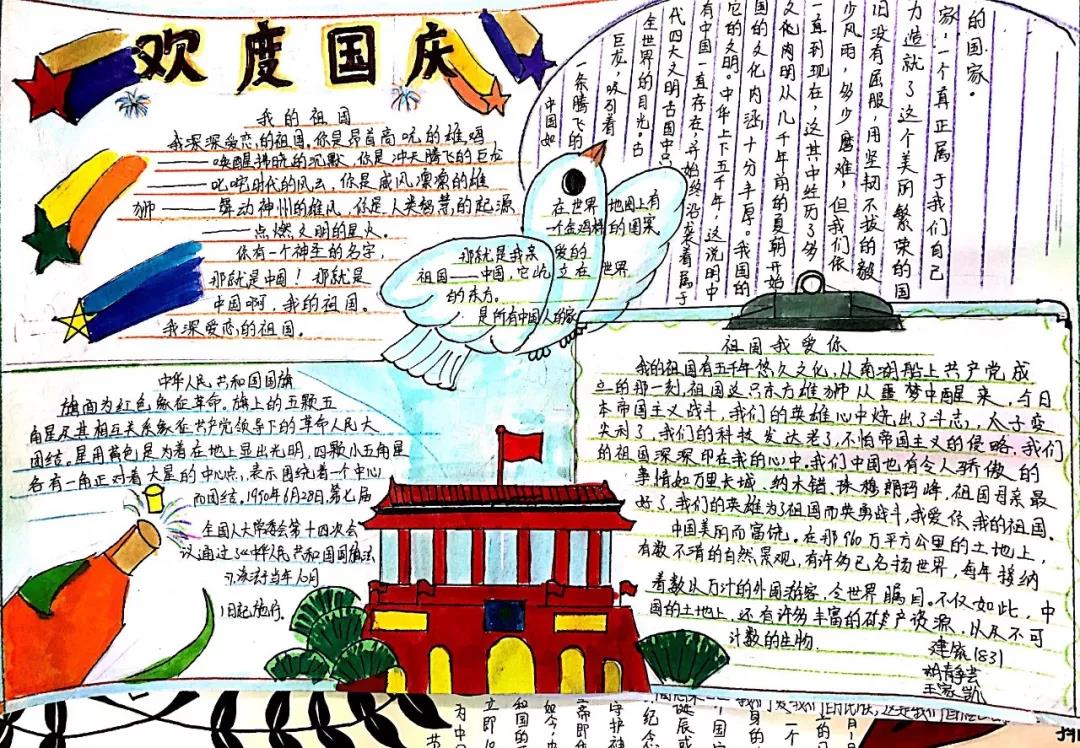 欢度国庆
我的祖国
我深深爱恋的祖国。你是昂首高吭的雄鸡
——唤醒拂晓的沉默,你是冲天腾飞的巨龙
——叱咤时代的风云,你是威风凛凛的雄
狮——舞动神州的雄风,你是人类智慧的起源
——点燃文明的星火。
你有一个神圣的名字,
那就是中国!那就是
中国啊,我的祖国。
我深爱恋的祖国。
在世界地图上有
一个金鸡样的图案
那就是我亲爱的
祖国——中国,它屹立在世界
的东方。
是所有中国人的家
中国如
一条腾飞的
巨龙,吸引着
全世界的目光。古
代四大文明古国中只
有中国一直存在,并始终沿袭着属于
它的文明。中华上下五千年,这说明中
国的文化内涵,十分丰厚。我国的
文化内明从几千年前的夏朝开始
一直到现在,这其中经历了多
少风雨,多少磨难,但我们依
旧没有屈服,用坚韧不拔的毅
力造就了这个美丽繁荣的国
家,一个真正属于我们自己
的国家.
中华人民共和国国旗
旗面为红色,象征革命。旗上的五颗五
角星及其相互关系象征共产党领导下的革命人民大
团结。星用黄色是为着在地上显出光明,四颗小五角星
各有一角正对着大星的中心点,表示围绕着一个中心
而团结。1990年6月28日,第七届
全国人大常委会第十四次会
议通过了《中华人民共和国国旗法
》,该法于当年10月
1日起施行。
祖国我爱你
我的祖国有五千年悠久文化,从南湖船上共产党成
立的那一刻,祖国这只东方雄狮从噩梦中醒来,今日
本帝国主义战斗,我们的英雄心中烧出了斗志,太子变
尖利了,我们的科技发达老了,不怕帝国主义的侵略,我们
的祖国深深印在我的心中。我们中国也有令人骄傲的
事情如万里长城,纳木错、珠穆朗玛峰,祖国母亲最
好了,我们的英雄为了祖国而英勇战斗,我爱你,我的祖国.
中国美丽而富饶。在那960万平方公里的土地上,
有数不清的自然景观,有许多已名扬世界,每年接纳
着数以万计的外国游客,令世界瞩目。不仅如此,中
国的土地上,还有许多丰富的矿产资源,以及不可
计数的生物.
1831